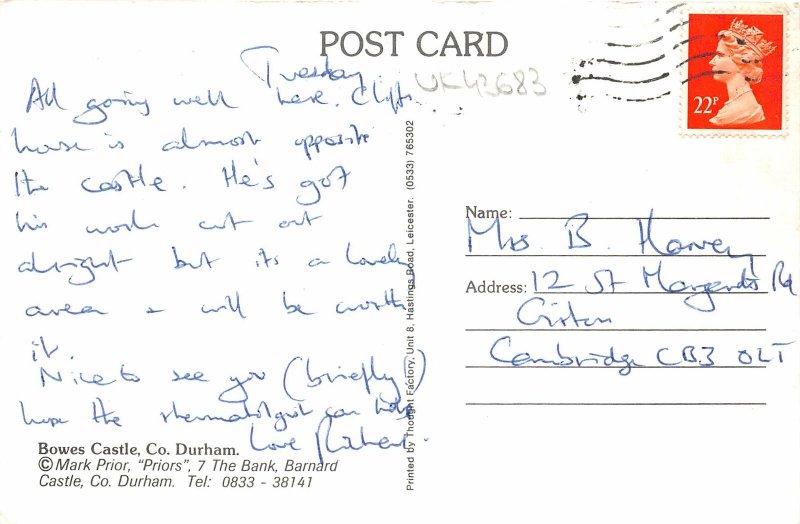 POST CARD
UK43683
22P
Tuesday
All going well here. Clift's
house is almost opposite
the castle. He's got
his work cut out
alright but its a lovely
area & will be worth
it.
Nice to see you (briefly)
hope the rhematologist can help
Love
Bowes Castle, Co. Durham.
© Mark Prior, "Priors", 7 The Bank, Barnard
Castle, Co. Durham. Tel: 0833 - 38141
Printed by Thought Factory, Unit 8, Hastings Road, Leicester. (0533) 765302
Name: Mrs B. Harvey
Address: 12 St Margarets Rd
Girton
Cambridge CB3 0LT